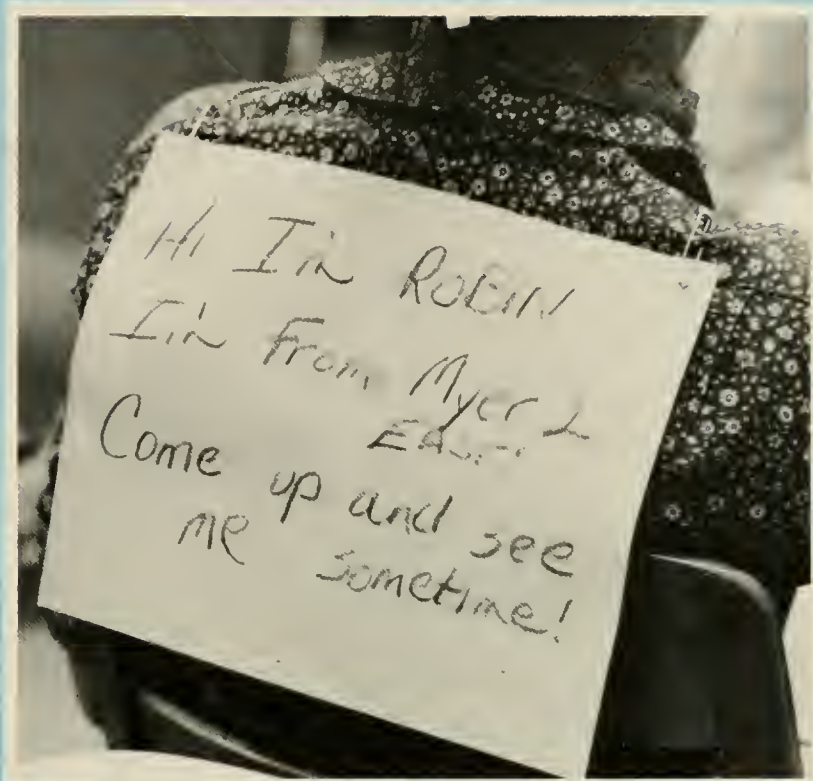 Hi I'm ROBIN
I'm From Myer 2
EAST
Come up and see
me sometime!